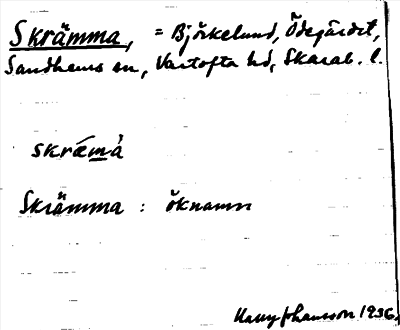 Skrämma, = Björkelund, Ödegärdet,
Sandhems sn, Vartofta hd, Skarab. l.
skrǽmà
Skrämma : öknamn
Harry Johansson 1936.